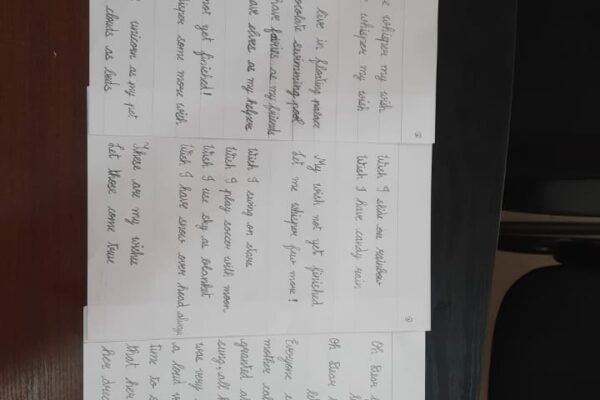 whisper my wish
whisper my wish
live in floating palace
swimming pool
fairies as my friends
elves as my helpers
not yet finished!
some more wish
unicorn as my pet
clouds as beds
Wish I slide on rainbow
Wish I have candy rain
My wish not yet finished
Let me whisper few more!
Wish I swing on stars
Wish I play soccer with moon
Wish I use sky as blanket
Wish I have snow over head
These are my wishes
Let those come true
Oh Dear
Oh Dear
Everyone
mother
granted
sung, all
was very
a loud
time to
that her
her